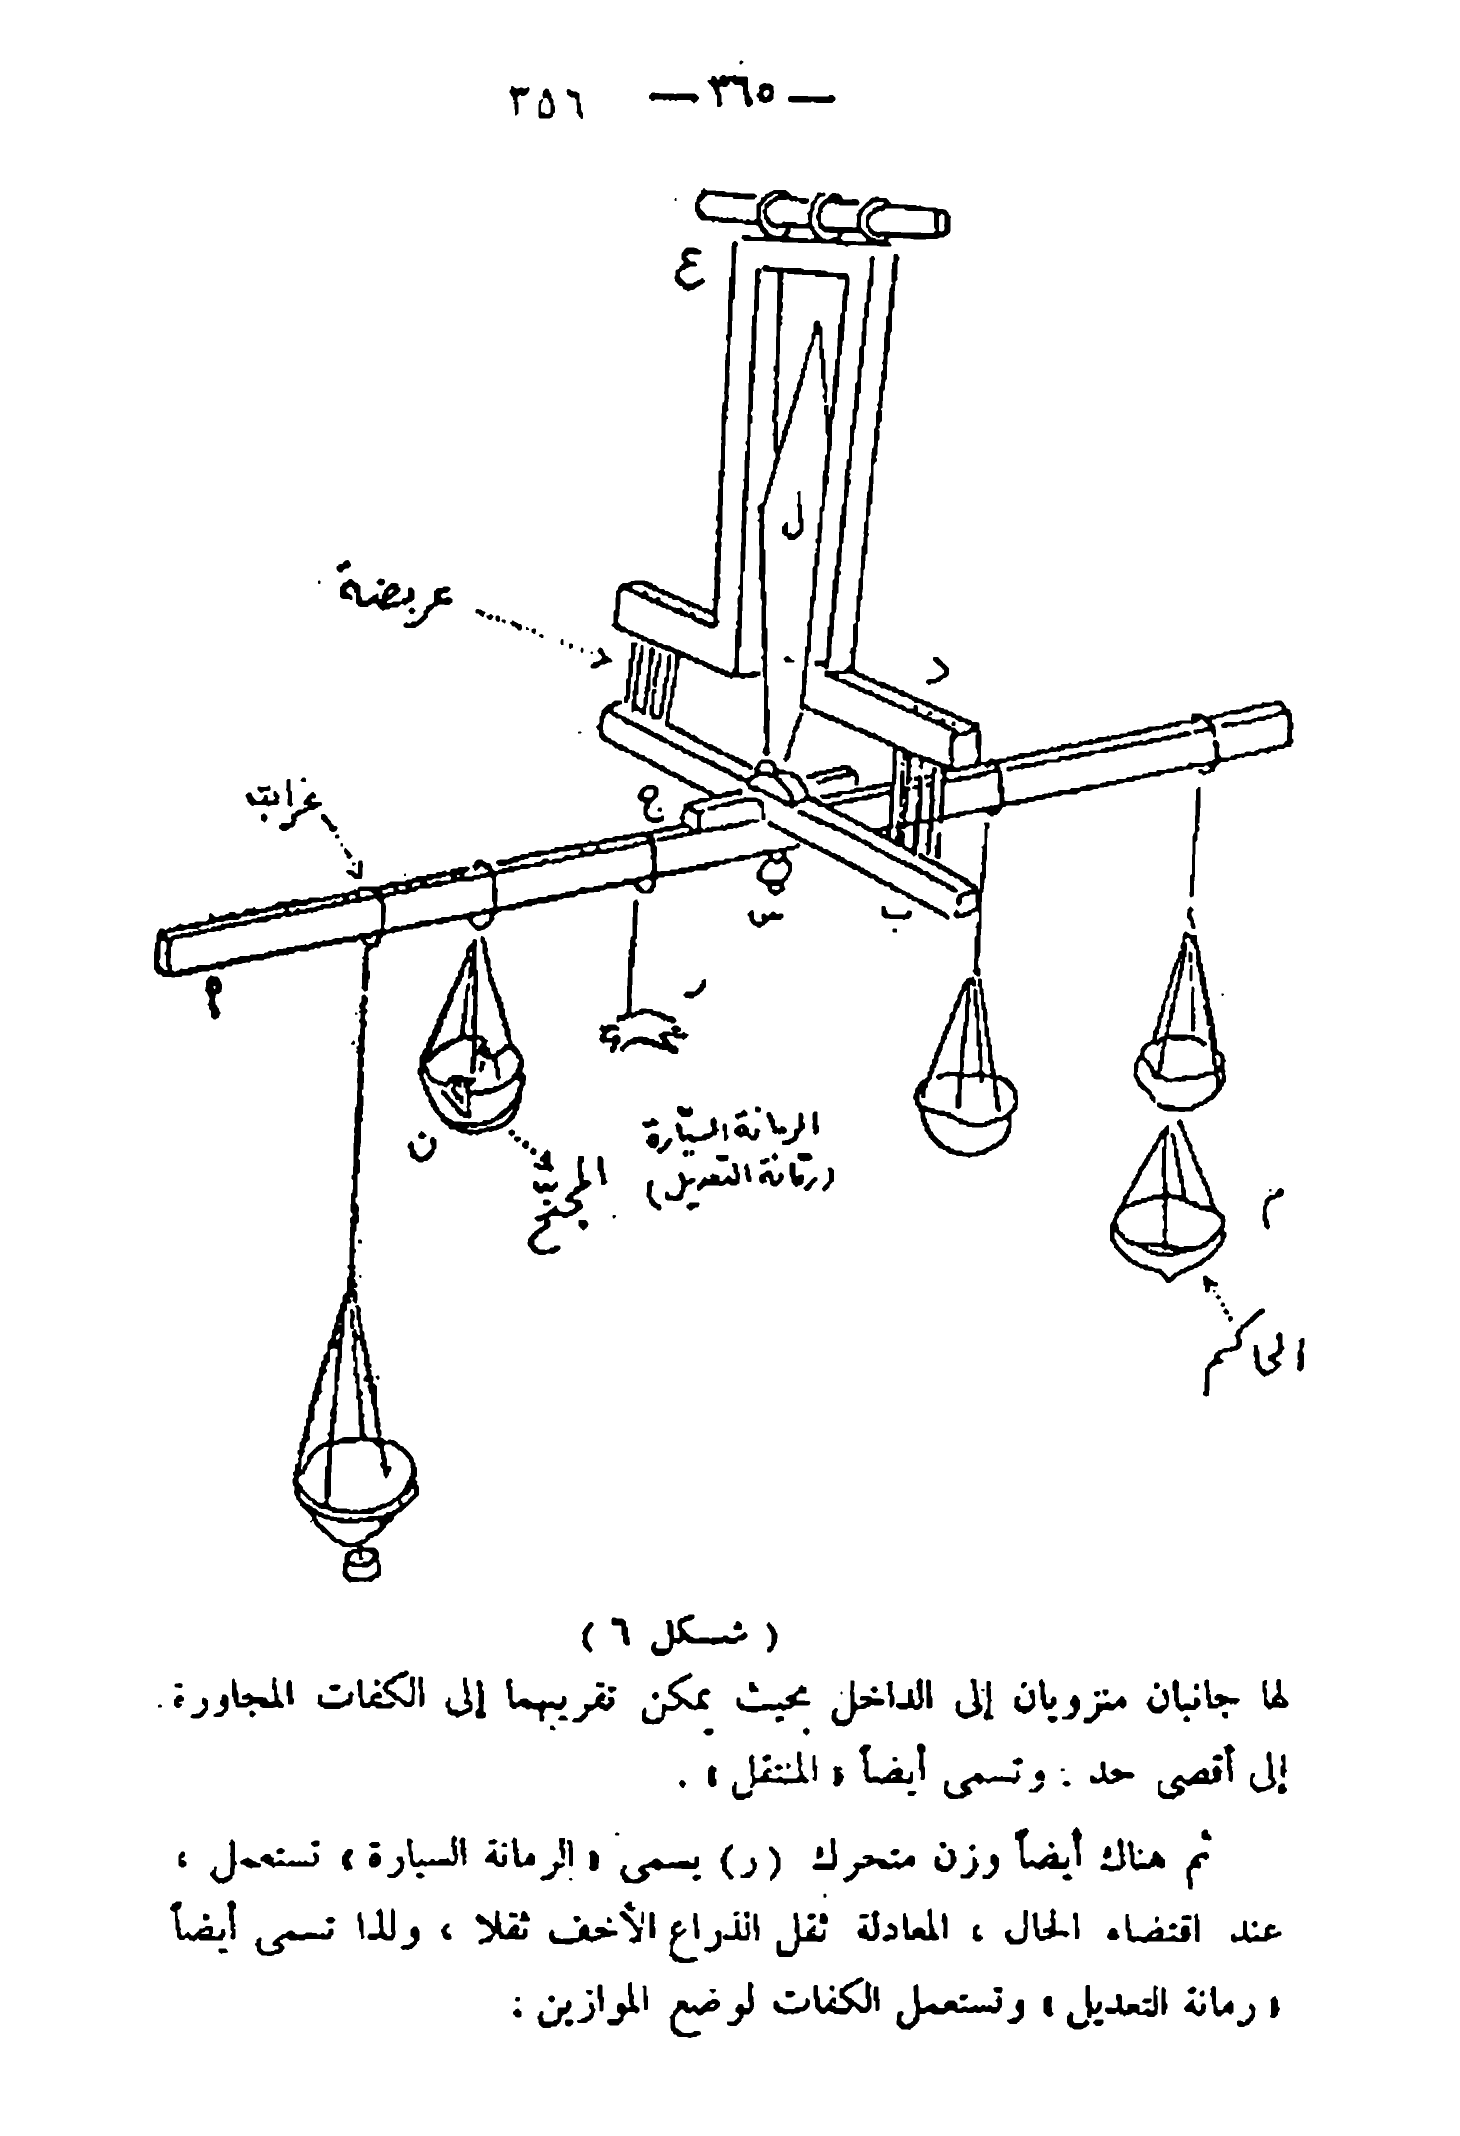 — ٣٦٥ — ٣٥٦
ع
ل
عريضة
د
ج
غرابه
س
ب
م
ر
ن
الرمانة السيّارة
(رمّانة التعديل)
المجنّح
م
الحاكم
( شكل ٦ )
لها جانبان منزويان إلى الداخل بحيث يمكن تقريبهما إلى الكفات المجاورة
إلى أقصى حد . وتسمى أيضاً « المنتقل » .
ثم هناك أيضاً وزن متحرك ( ر ) يسمى « الرمانة السيارة » تستعمل ،
عند اقتضاء الحال ، المعادلة ثقل الذراع الأخف ثقلا ، وللذا تسمى أيضاً
« رمانة التعديل » وتستعمل الكفات لوضع الموازين :